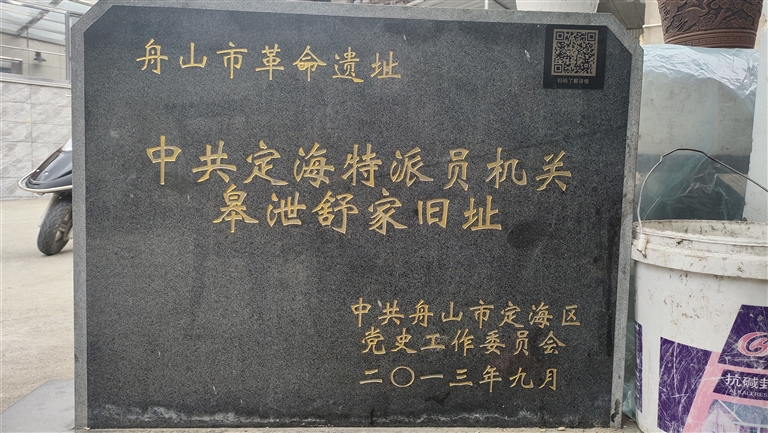 舟山市革命遗址
扫码了解详情
中共定海特派员机关
皋泄舒家旧址
中共舟山市定海区
党史工作委员会
二〇一三年九月
抗碱封
ALKALI RES